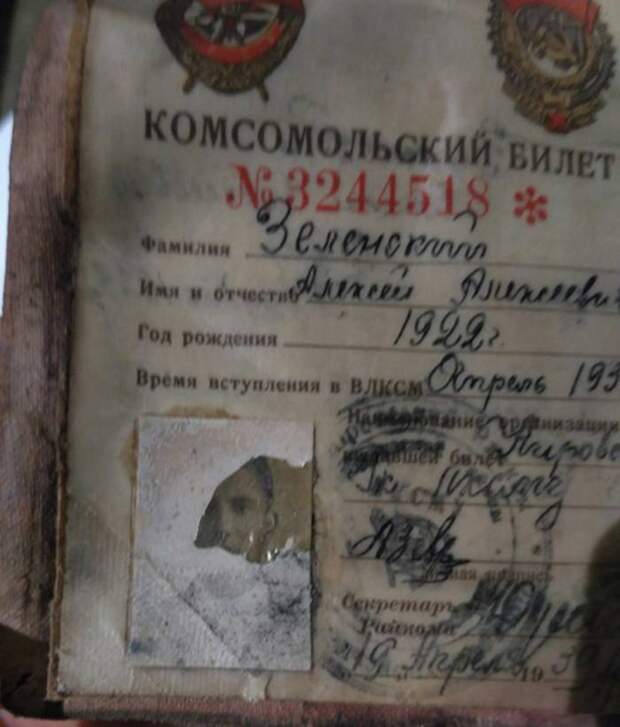 КОМСОМОЛЬСКИЙ БИЛЕТ
№ 3244518 *
Фамилия Зеленский
Имя и отчество Алексей Алексеевич
Год рождения 1922 г
Время вступления в ВЛКСМ Апрель 193
Наименование организации
выдавшей билет Кировс
Рк
Личная подпись
Секретарь
Райкома
19 Апреля 1939